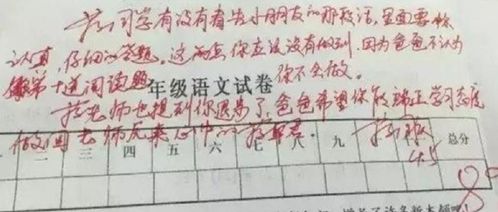 同学有没有看告小朋友们的那段话，里面要你
认真，仔细的答题。这两点你应该没有做到，因为爸爸不认为
第十道阅读题 你不会做。
年级语文试卷
老师也提到你退步了，爸爸希望你能端正学习态度
做回老师心中的
二 三 四 五 六 七 八 九 总分